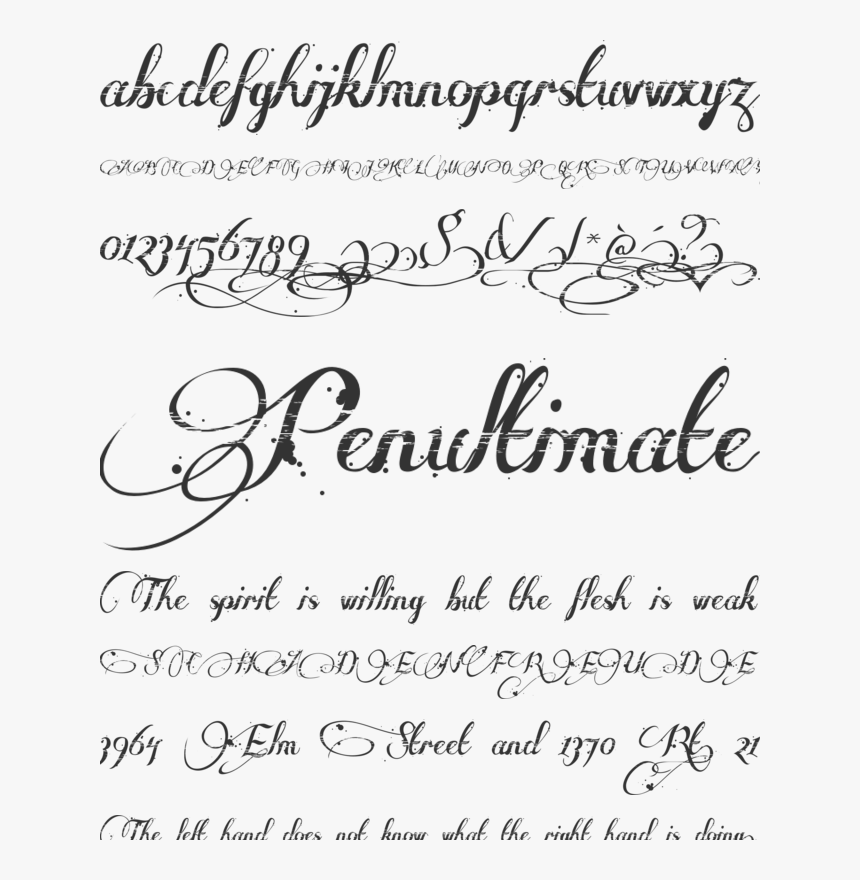 abcdefghijklmnopqrstuvwxyz
ABCDEFGHIJKLMNOPQRSTUVWXYZ
0123456789 & / * @ ?
Penultimate
The spirit is willing but the flesh is weak
SCHADENFREUDE
3964 Elm Street and 1370 Rt. 21
The left hand does not know what the right hand is doing.